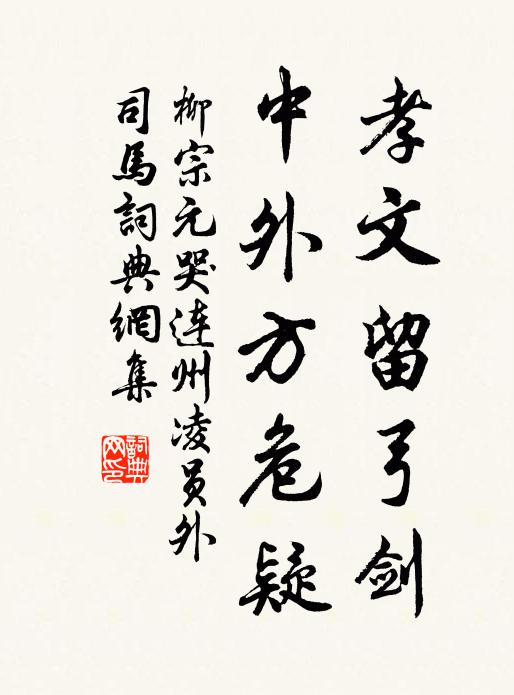 孝文留弓劍
中外方危疑
柳宗元哭連州凌员外
司馬詞典網集
詞典网印